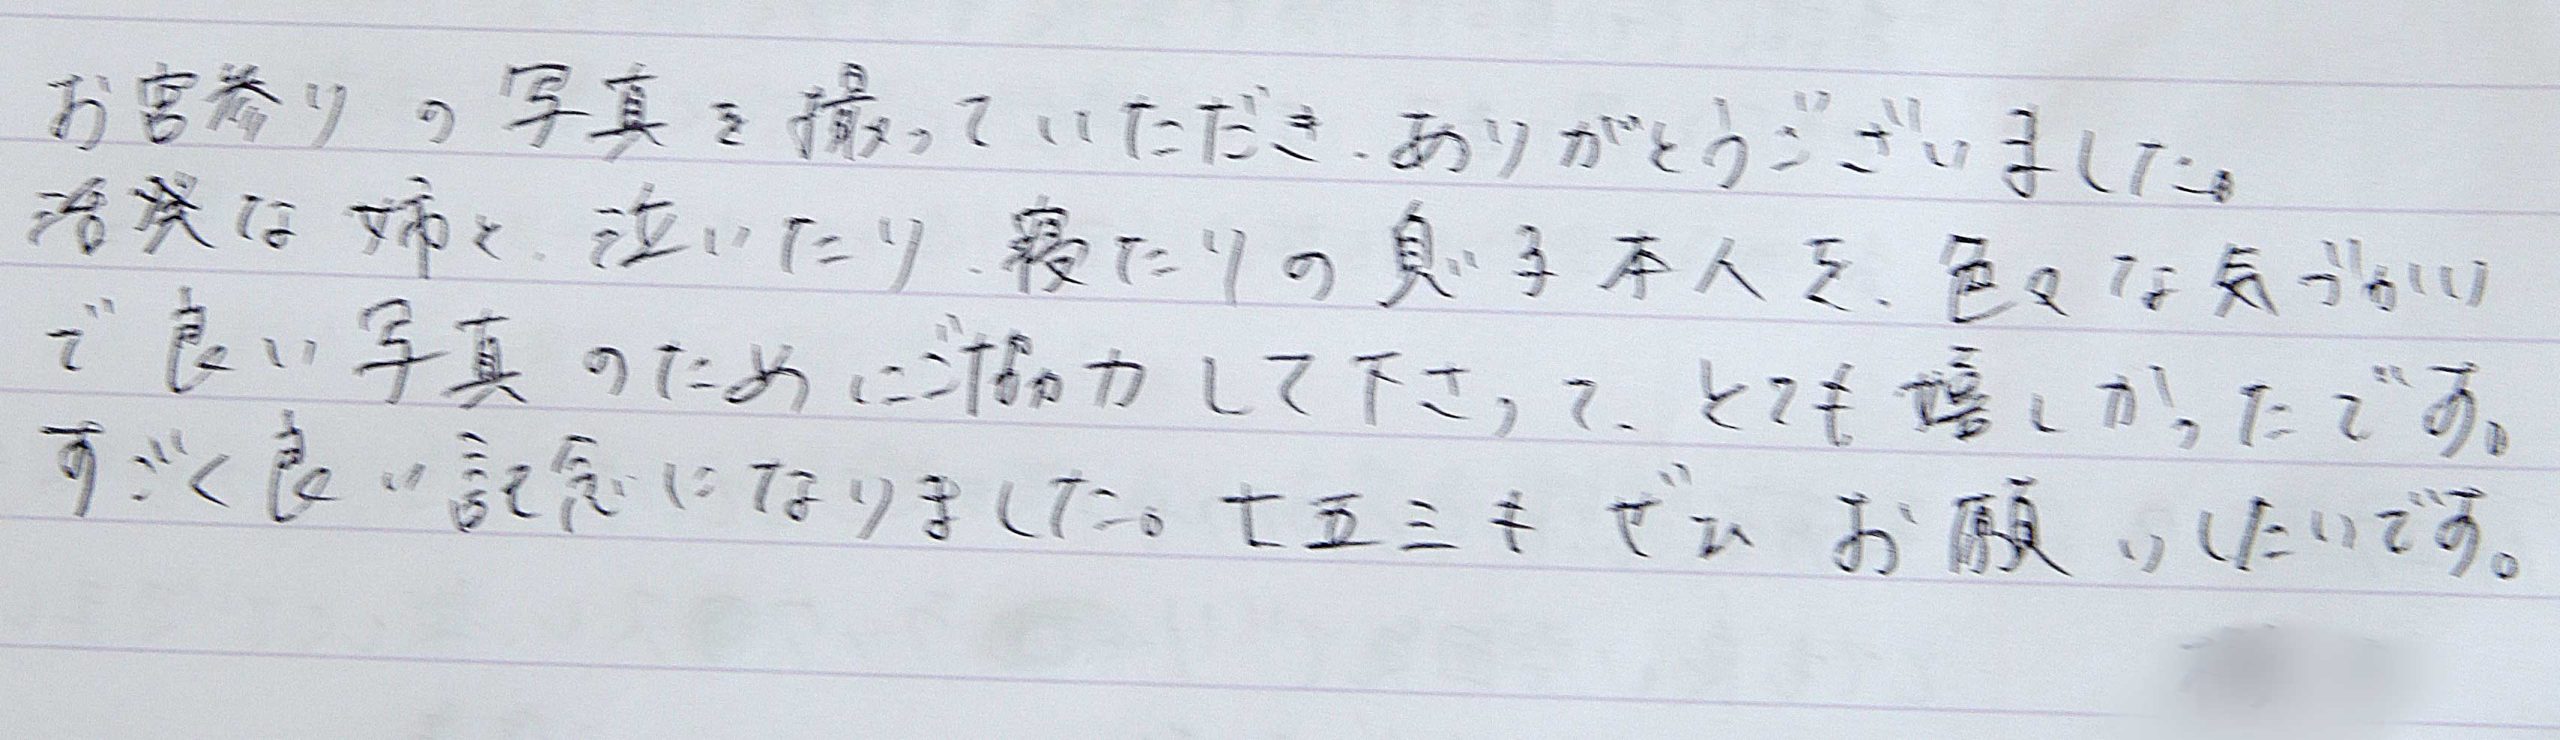 お宮参りの写真を撮っていただき、ありがとうございました。
活発な姉と、泣いたり、寝たりの息子本人を、色々な気づかい
で良い写真のためにご協力して下さって、とても嬉しかったです。
すごく良い記念になりました。七五三もぜひお願いしたいです。